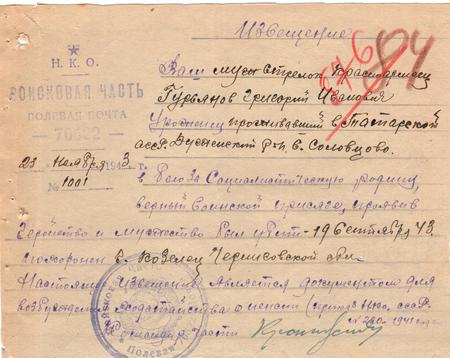 Извещение
246 84
Н.К.О.
ВОИСКОВАЯ ЧАСТЬ
ПОЛЕВАЯ ПОЧТА
76622
23 ноября 1943 г.
№ 1001
Ваш муж стрелок красноармеец
Гурьянов Григорий Иванович
Уроженец проживавший в Татарской
асср. р-н. с. Соловцово.
в бою за Социалистическую родину,
верный воинской присяге, проявив
геройство и мужество был убит - 19 сентября 43,
похоронен с. Козелец Черниговской обл.
Настоящее извещение является документом для
возбуждения ходатайства о пенсии (приказ НКО. ссср.
№ 220. 1941 года
Командир части
Полевая